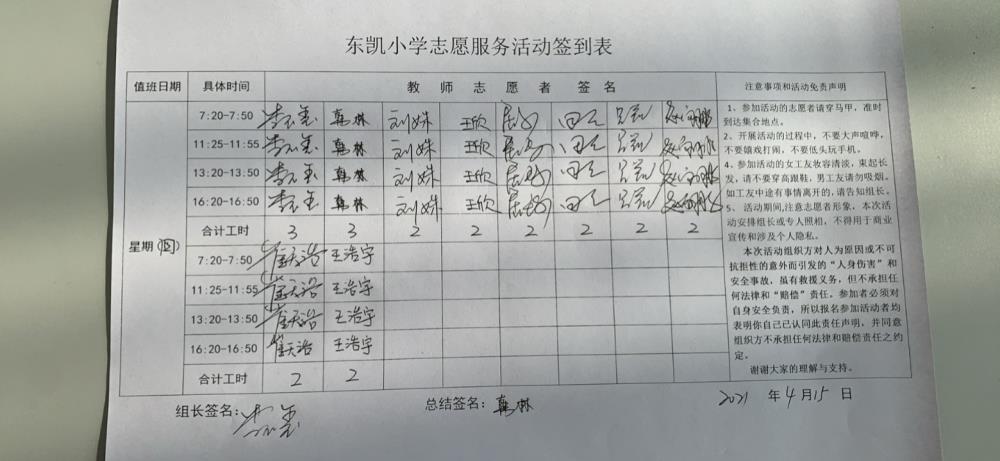 东凯小学志愿服务活动签到表
值班日期 具体时间 教师志愿者签名 注意事项和活动免责声明
7:20-7:50 韩林 刘姝 王欣
11:25-11:55 韩林 刘姝 王欣
13:20-13:50 韩林 刘姝 王欣
16:20-16:50 韩林 刘姝 王欣
合计工时 3 3 2 2 2 2 2 2
星期（四）
7:20-7:50 崔天浩 王浩宇
11:25-11:55 崔天浩 王浩宇
13:20-13:50 崔天浩 王浩宇
16:20-16:50 崔天浩 王浩宇
合计工时 2 2
1、参加活动的志愿者请穿马甲，准时
到达集合地点。
2、开展活动的过程中，不要大声喧哗，
不要嬉戏打闹，不要低头玩手机。
4、参加活动的女工友妆容清淡，束起长
发，请不要穿高跟鞋，男工友请勿吸烟。
如工友中途有事情离开的，请告知组长。
5、活动期间,注意志愿者形象，本次活
动安排组长或专人照相，不得用于商业
宣传和涉及个人隐私。
本次活动组织方对人为原因或不可
抗拒性的意外而引发的“人身伤害”和
安全事故，虽有救援义务，但不承担任
何法律和“赔偿”责任。参加者必须对
自身安全负责，所以报名参加活动者均
表明你自己已认同此责任声明，并同意
组织方不承担任何法律和赔偿责任之约
定。
谢谢大家的理解与支持。
组长签名： 总结签名：韩林 2021 年 4 月 15 日